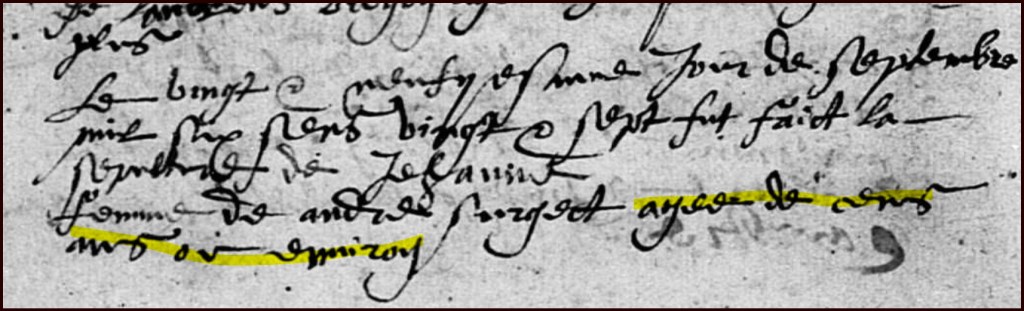 Le vingt & neufyesme Jour de septembre
mil six sens vingt & sept fut faict la
sepulture de Jehanne
femme de andre surgect agee de cens
ans ou environ